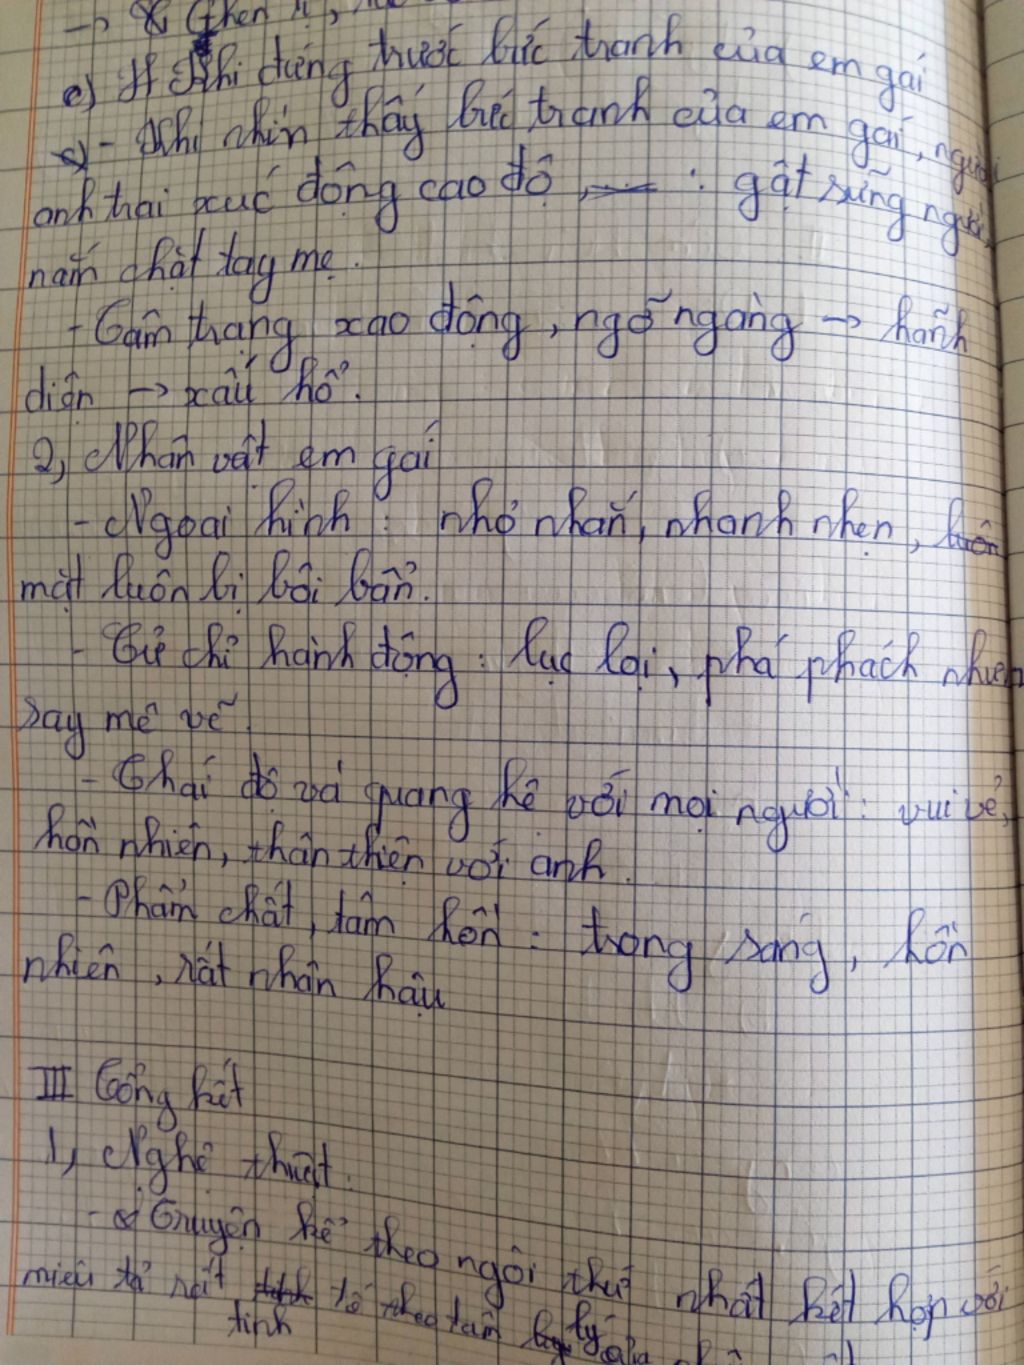 → (ghen tị,
c) Khi đứng trước bức tranh của em gái
- Khi nhìn thấy bức tranh của em gái, người
anh trai xúc động cao độ, : gật sững người,
nắm chặt tay mẹ.
- Tâm trạng xao động, ngỡ ngàng → hãnh
diện → xấu hổ.
2, Nhân vật em gái
- Ngoại hình : nhỏ nhắn, nhanh nhẹn, luôn
mặt luôn bị bôi bẩn.
- Cử chỉ hành động : lục lọi, phá phách nhưng
say mê vẽ
- Thái độ và quang hệ với mọi người : vui vẻ,
hồn nhiên, thân thiện với anh.
- Phẩm chất, tâm hồn : trong sáng, hồn
nhiên, rất nhân hậu
III Tổng kết
1, Nghệ thuật.
- Truyện kể theo ngôi thứ nhất kết hợp với
miêu tả rất tinh tế theo tâm lý của